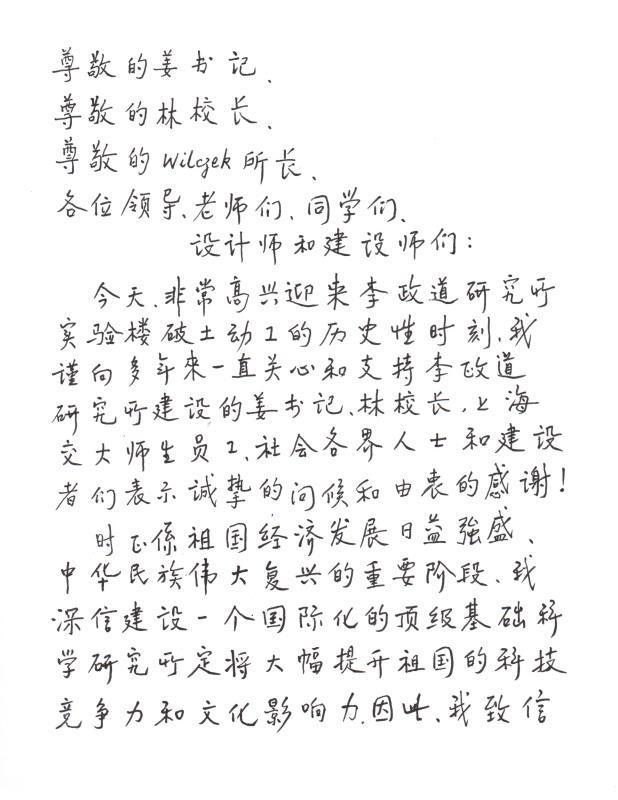 尊敬的姜书记、
尊敬的林校长、
尊敬的Wilczek所长、
各位领导、老师们、同学们、
设计师和建设师们：
今天、非常高兴迎来李政道研究所
实验楼破土动工的历史性时刻、我
谨向多年来一直关心和支持李政道
研究所建设的姜书记、林校长、上海
交大师生员工、社会各界人士和建设
者们表示诚挚的问候和由衷的感谢！
时正係祖国经济发展日益強盛、
中华民族伟大复兴的重要阶段、我
深信建设一个国际化的顶级基础科
学研究所定将大幅提升祖国的科技
竞争力和文化影响力、因此、我致信